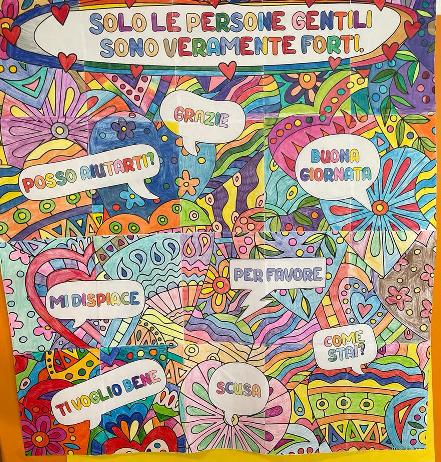 SOLO LE PERSONE GENTILI
SONO VERAMENTE FORTI.
GRAZIE
POSSO AIUTARTI?
BUONA
GIORNATA
MI DISPIACE
PER FAVORE
COME
STAI?
TI VOGLIO BENE
SCUSA